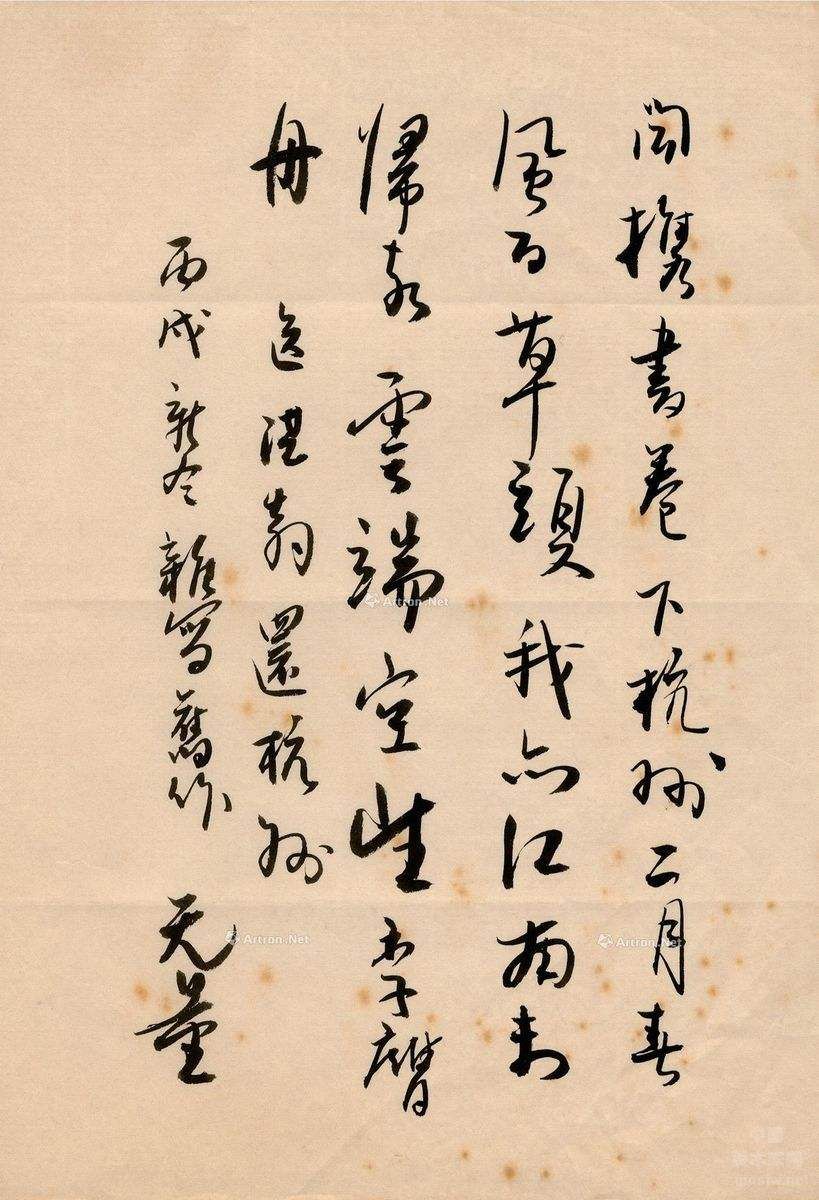 闻攜書卷下杭州二月春
風百草頭我亦江南未
歸客雲端空望李膺
舟 送湛翁還杭州
丙戌新冬雜寫舊作 无量
Artron.Net
Artron.Net
Artron.Net